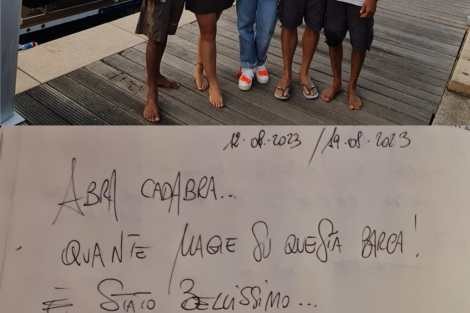 12.08.2023 / 19.08.2023
ABRA CADABRA...
QUANTE MAGIE SU QUESTA BARCA!
È STATO BELLISSIMO...